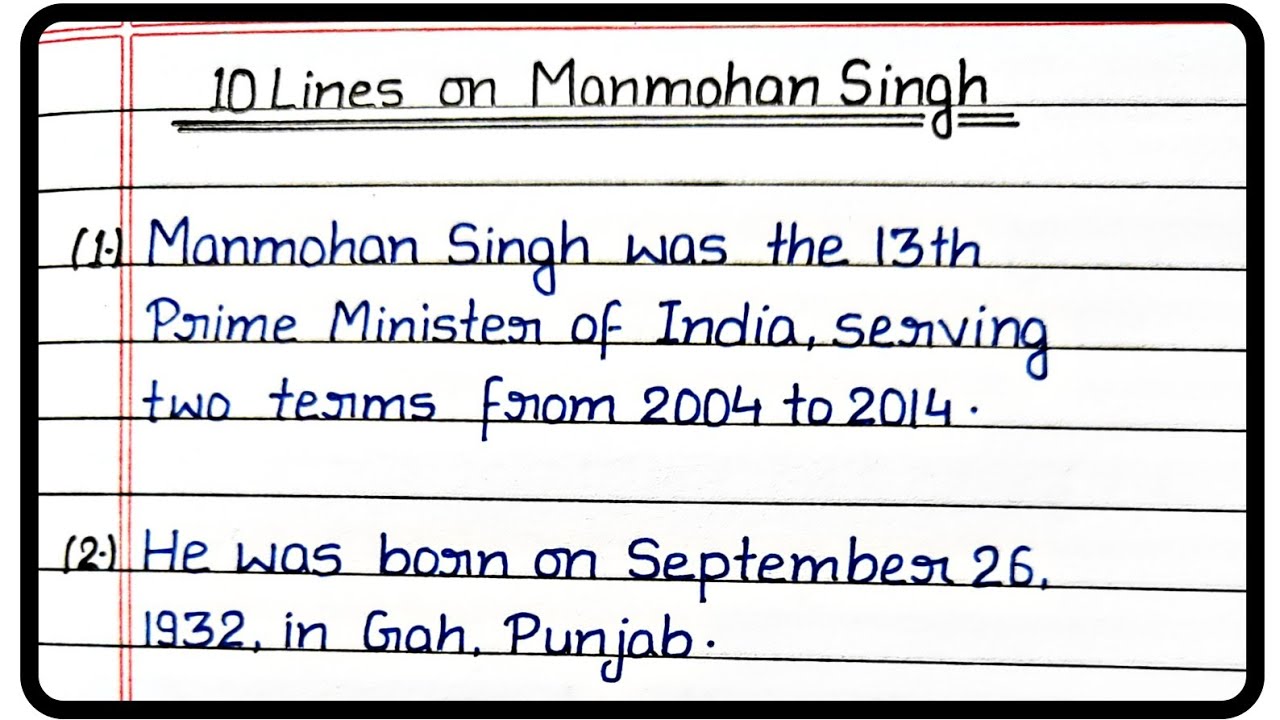 10 Lines on Manmohan Singh
(1.) Manmohan Singh was the 13th
Prime Minister of India, serving
two terms from 2004 to 2014.
(2.) He was born on September 26,
1932, in Gah, Punjab.